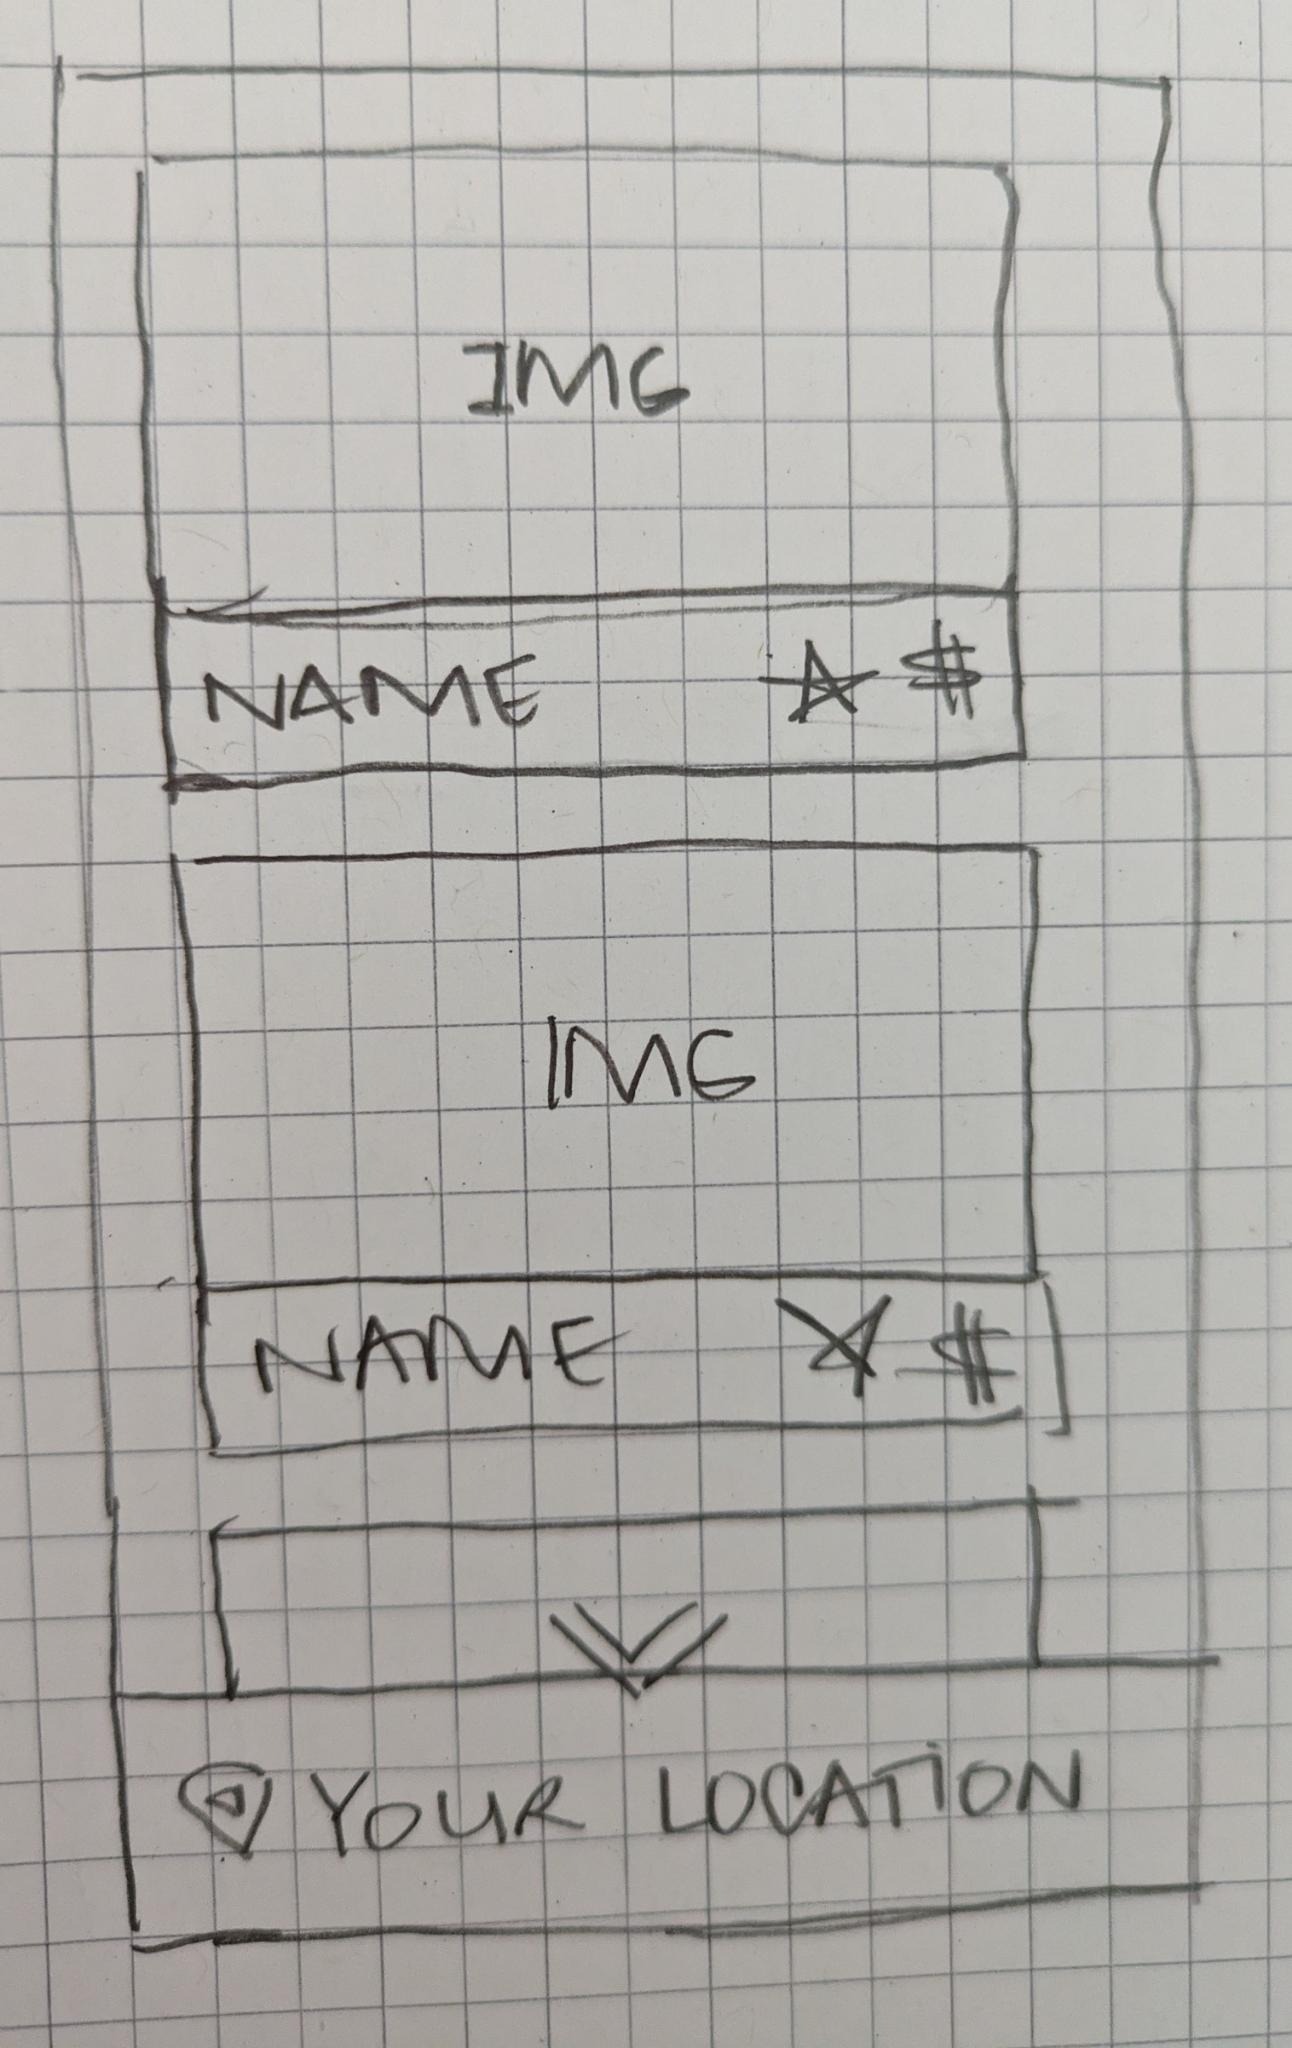 IMG
NAME ☆ $
IMG
NAME ☆ $
YOUR LOCATION